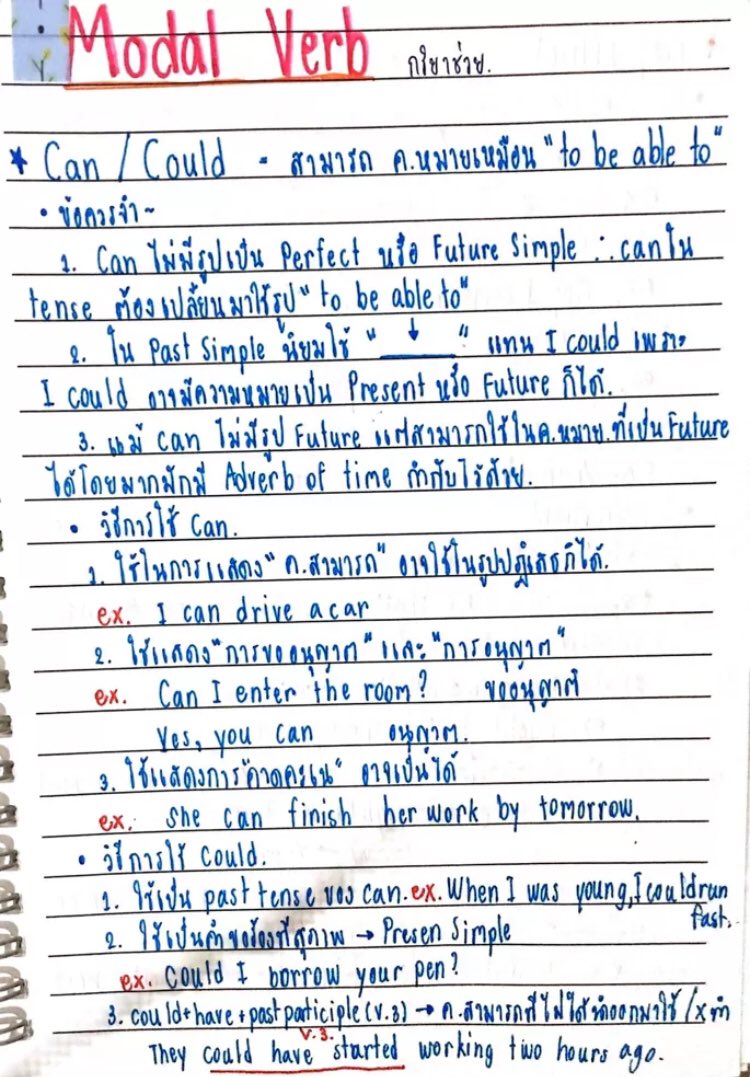 Modal Verb กริยาช่วย.
* Can / Could - สามารถ ค.หมายเหมือน "to be able to"
• ข้อควรจำ ~
1. Can ไม่มีรูปเป็น Perfect หรือ Future Simple ∴ can ใน
tense ต้องเปลี้ยนมาใช้รูป "to be able to"
2. ใน Past Simple นิยมใช้ "__↓__" แทน I could เพราะ
I could อาจมีความหมายเป็น Present หรือ Future ก็ได้.
3. แม้ can ไม่มีรูป Future แต่สามารถใช้ในค.หมาย.ที่เป็น Future
ได้โดยมากมักมี Adverb of time กำกับไว้ด้วย.
• วิธีการใช้ Can.
1. ใช้ในการแสดง "ค.สามารถ" อาจใช้ในรูปปฏิเสธก็ได้.
ex. I can drive a car
2. ใช้แสดง "การขออนุญาต" และ "การอนุญาต"
ex. Can I enter the room? ขออนุญาต
Yes, you can อนุญาต.
3. ใช้แสดงการ"คาดคะเน" อาจเป็นได้
ex. She can finish her work by tomorrow.
• วิธีการใช้ Could.
1. ใช้เป็น past tense ของ can. ex. When I was young, I could run
fast.
2. ใช้เป็นคำขอร้องที่สุภาพ → Presen Simple
ex. Could I borrow your pen?
3. could + have + past participle (v.3) → ค.สามารถที่ไม่ได้ออกมาใช้ / x ทำ
v.3.
They could have started working two hours ago.